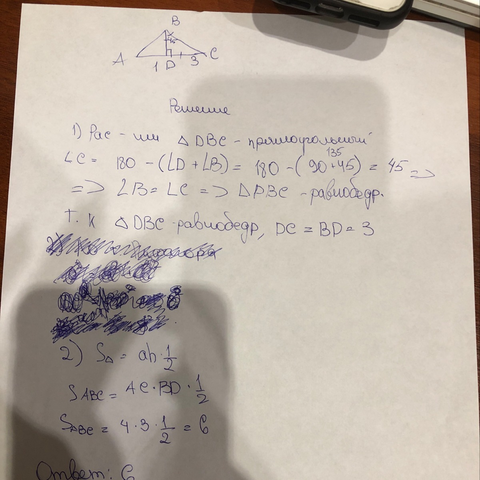 B
A 1 D 3 C
Решение
1) Рас-им △DBC - прямоугольный
135
∠C = 180 - (∠D + ∠B) = 180 - (90+45) = 45 =>
=> ∠B = ∠C => △DBC - равнобедр.
Т.к △DBC - равнобедр, DC = BD = 3
2) S△ = ah·1/2
SABC = AC·BD·1/2
SABC = 4·3·1/2 = 6
Ответ: 6